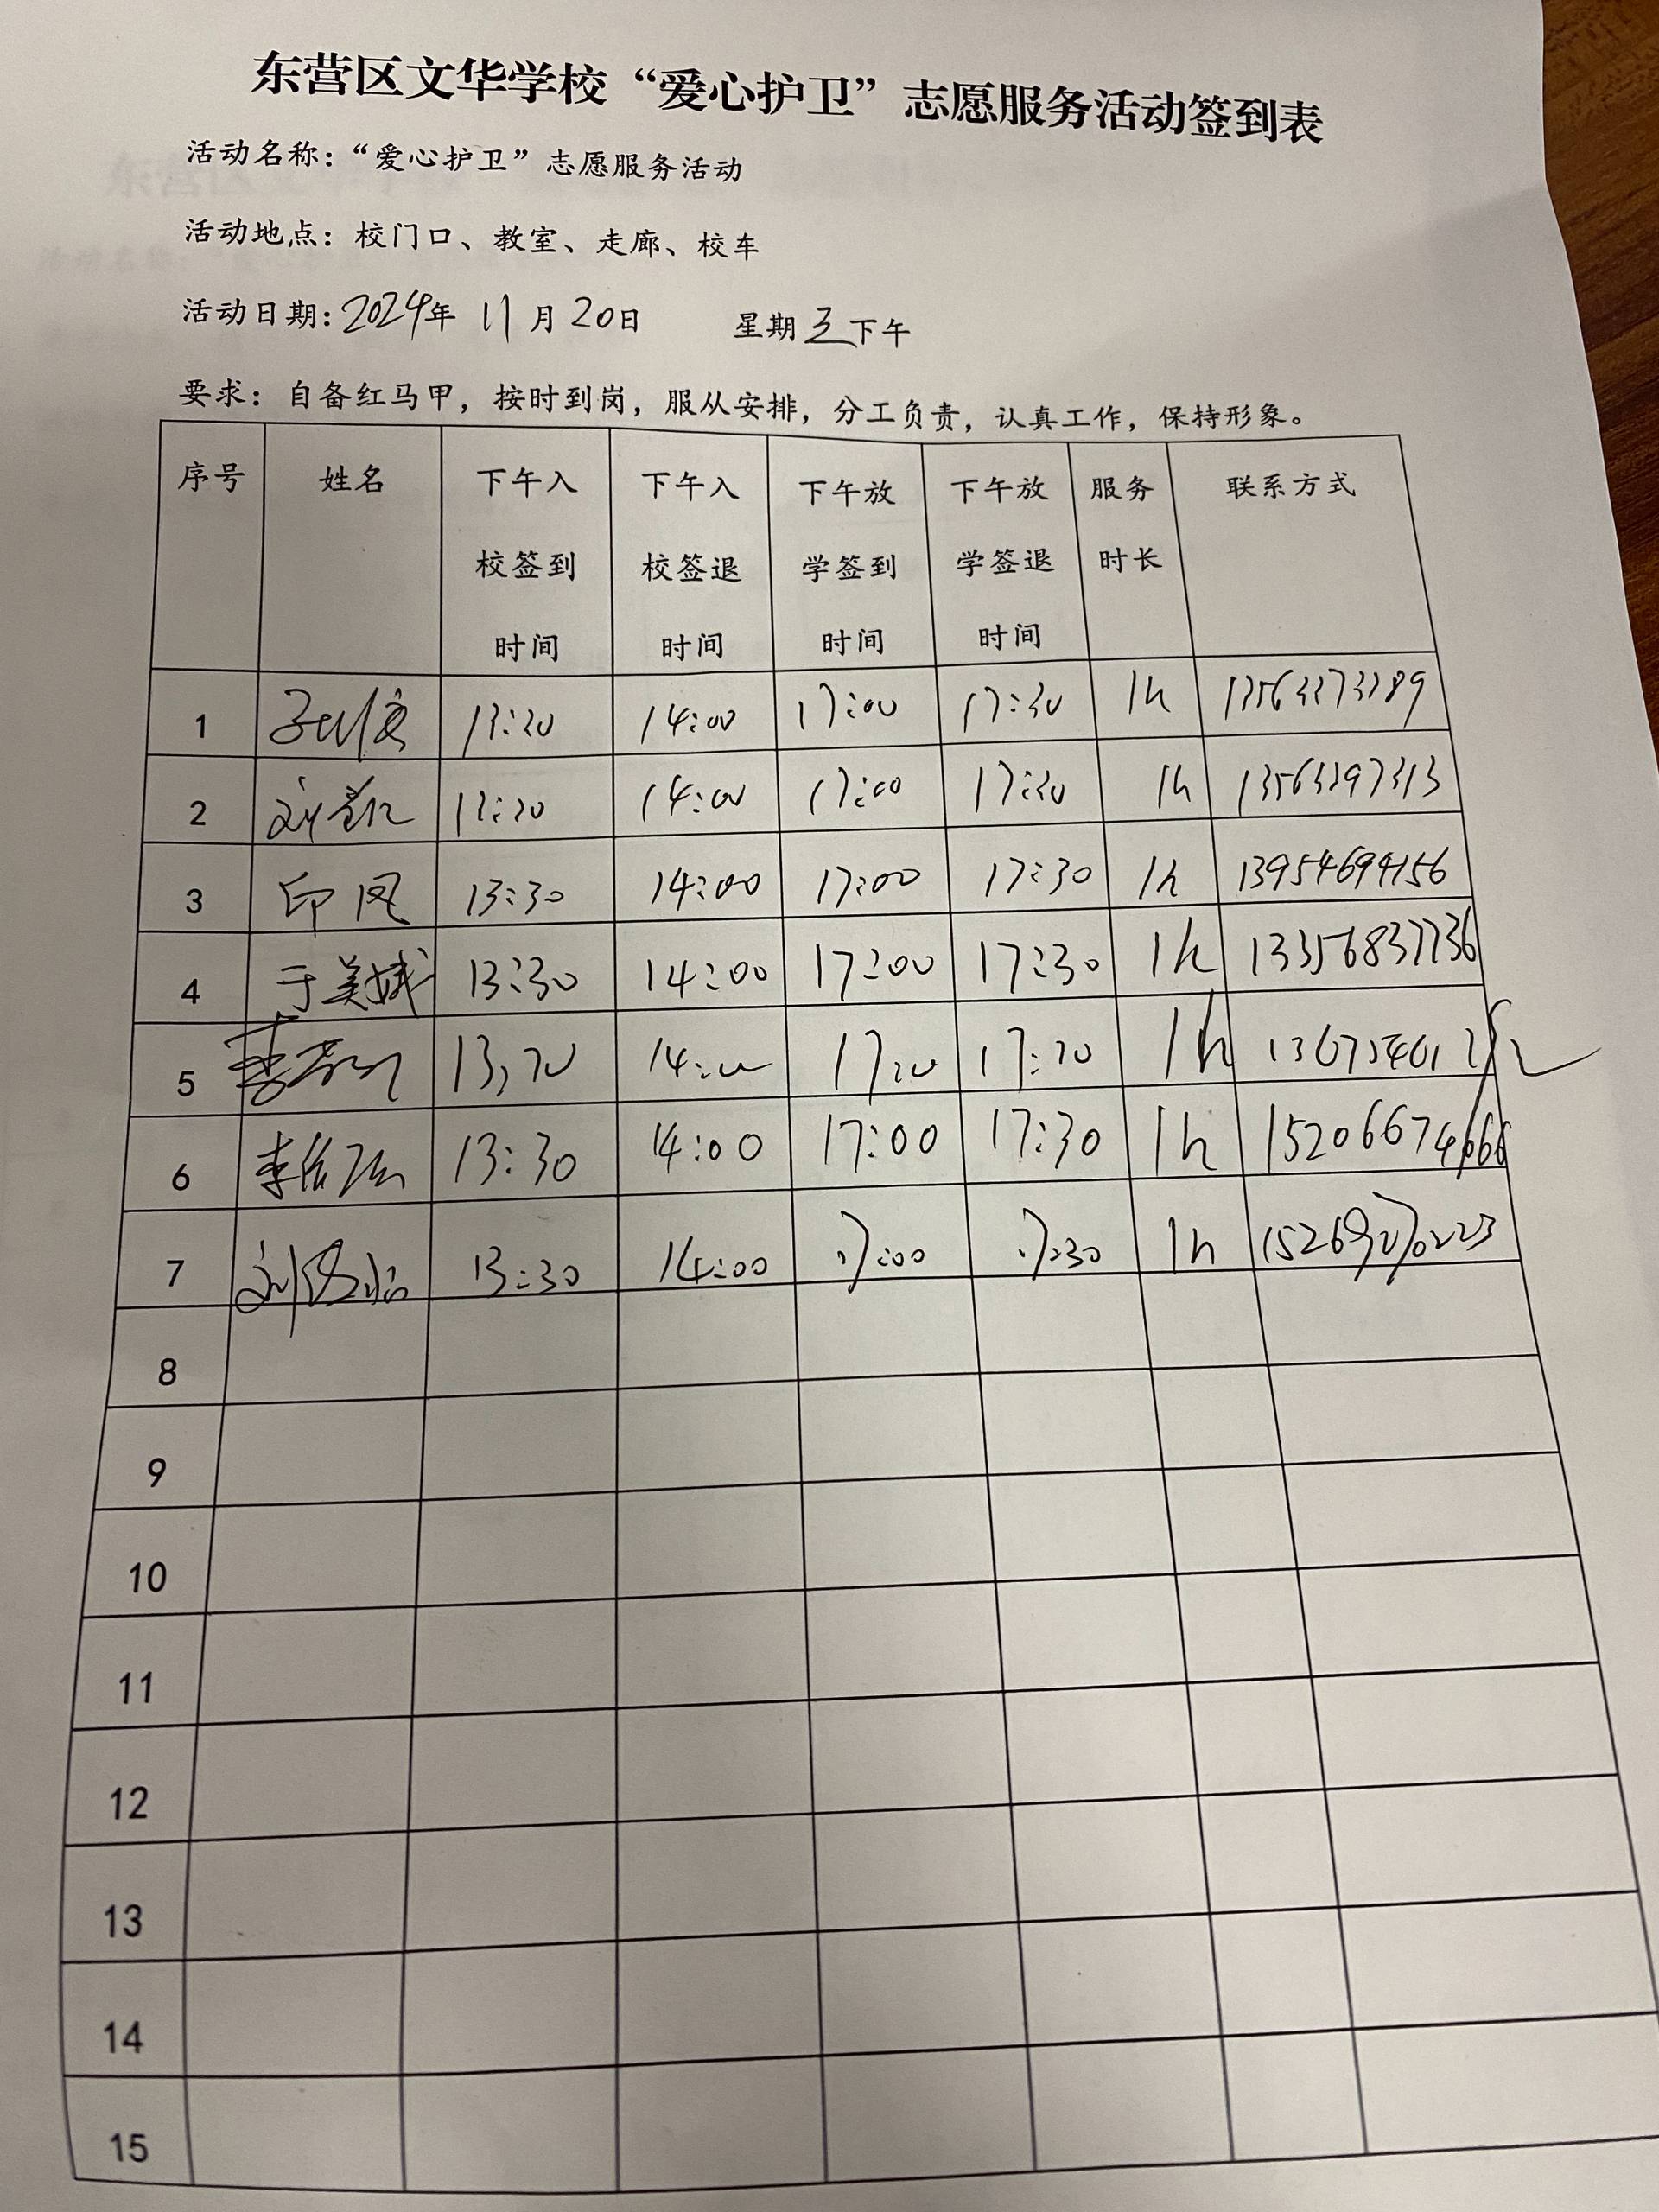 东营区文华学校“爱心护卫”志愿服务活动签到表
活动名称：“爱心护卫”志愿服务活动
活动地点：校门口、教室、走廊、校车
活动日期：2024年 11月 20日 星期三下午
要求：自备红马甲，按时到岗，服从安排，分工负责，认真工作，保持形象。
序号 姓名 下午入校签到时间 下午入校签退时间 下午放学签到时间 下午放学签退时间 服务时长 联系方式
1 13:30 14:00 17:00 17:30 1h
2 13:30 14:00 17:00 17:30 1h
3 印凤 13:30 14:00 17:00 17:30 1h 13954694156
4 于美娥 13:30 14:00 17:00 17:30 1h 13356837736
5 14:00 1h
6 13:30 14:00 17:00 17:30 1h 15206674666
7 13:30 14:00 17:00 17:30 1h
8
9
10
11
12
13
14
15